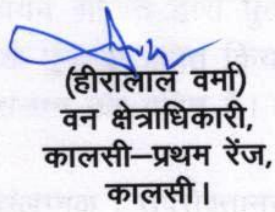 (हीरालाल वर्मा)
वन क्षेत्राधिकारी,
कालसी–प्रथम रेंज,
कालसी।